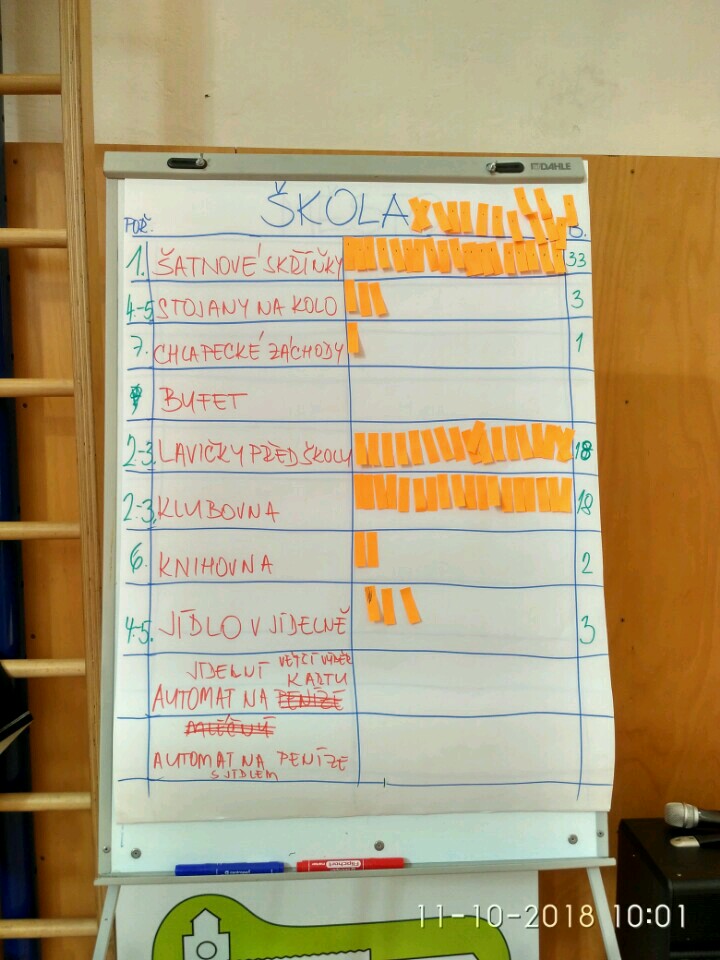 DAHLE
ŠKOLA
POŘ.
1. ŠATNOVÉ SKŘÍŇKY 33
4.-5. STOJANY NA KOLO 3
7. CHLAPECKÉ ZÁCHODY 1
BUFET
2-3. LAVIČKY PŘED ŠKOLU 18
2-3. KLUBOVNA 18
6. KNIHOVNA 2
4.-5. JÍDLO V JÍDELNĚ 3
VĚTŠÍ VÝBĚR
JÍDELNÍ KARTU
AUTOMAT NA PENÍZE
AUTOMAT NA PENÍZE
S JÍDLEM
Flipchart
11-10-2018 10:01